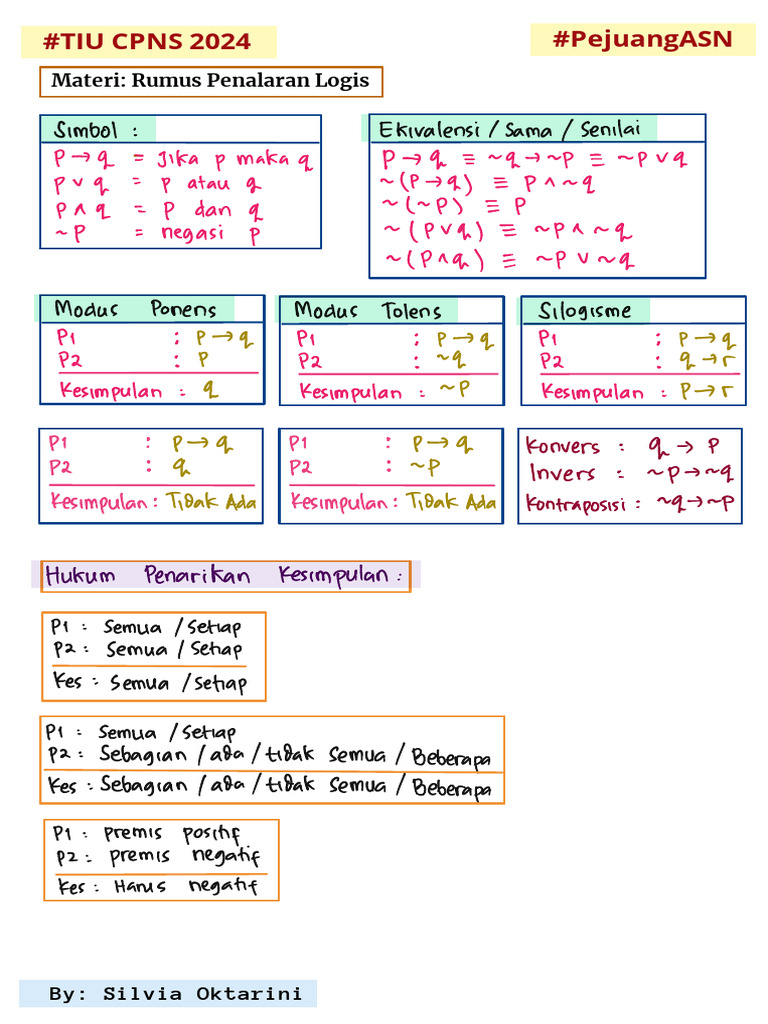 #TIU CPNS 2024
#PejuangASN
Materi: Rumus Penalaran Logis
Simbol :
P → q = Jika p maka q
P ∨ q = p atau q
P ∧ q = P dan q
~ P = negasi p
Ekivalensi / Sama / Senilai
P → q ≡ ~q → ~P ≡ ~P ∨ q
~(P → q) ≡ P ∧ ~q
~(~P) ≡ P
~(P ∨ q) ≡ ~P ∧ ~q
~(P ∧ q) ≡ ~P ∨ ~q
Modus Ponens
P1 : P → q
P2 : P
Kesimpulan : q
Modus Tolens
P1 : P → q
P2 : ~q
Kesimpulan : ~P
Silogisme
P1 : P → q
P2 : q → r
Kesimpulan : P → r
P1 : P → q
P2 : q
Kesimpulan : Tidak Ada
P1 : P → q
P2 : ~P
Kesimpulan : Tidak Ada
Konvers : q → P
Invers : ~P → ~q
Kontraposisi : ~q → ~P
Hukum Penarikan Kesimpulan :
P1 : Semua / Setiap
P2 : Semua / Setiap
Kes : Semua / Setiap
P1 : Semua / Setiap
P2 : Sebagian / ada / tidak semua / Beberapa
Kes : Sebagian / ada / tidak semua / Beberapa
P1 : Premis positif
P2 : premis negatif
Kes : Harus negatif
By: Silvia Oktarini